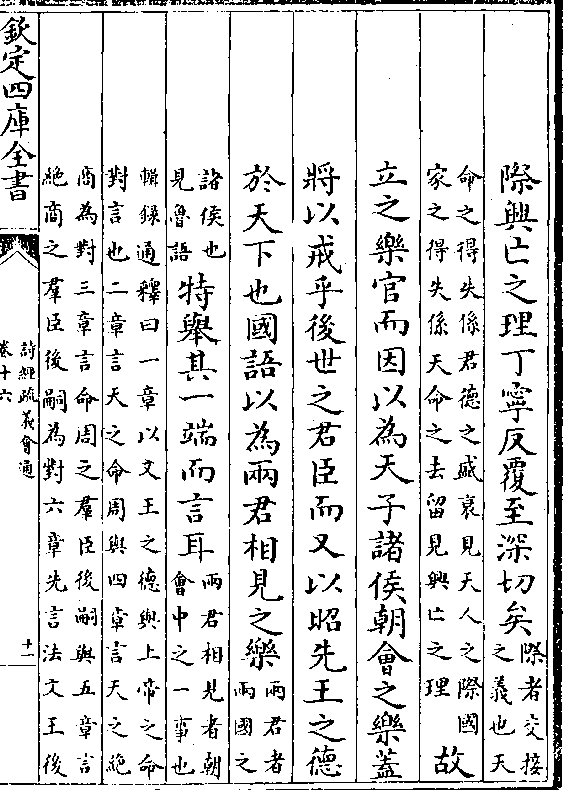 際興亡之理丁寧反覆至深切矣際者交接
之義也天
命之得失係君德之盛衰見天人之際國
家之得失係天命之去留見興亡之理故
立之樂官而因以為天子諸侯朝會之樂蓋
將以戒乎後世之君臣而又以昭先王之德
於天下也國語以為兩君相見之樂兩君者
兩國之
諸侯也
見魯語特舉其一端而言耳兩君相見者朝
會中之一事也
輯録通釋曰一章以文王之德與上帝之命
對言也二章言天之命周與四章言天之絶
商為對三章言命周之羣臣後嗣與五章言
絶商之羣臣後嗣為對六章先言法文王後
欽定四庫全書
詩經疏義會通
卷十六
十一